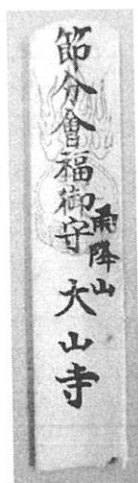 節分會福御守
雨降山
大山寺